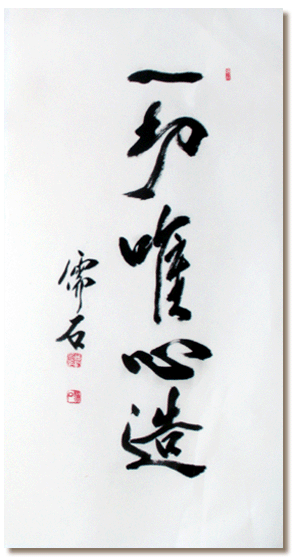 一切唯心造
儒石